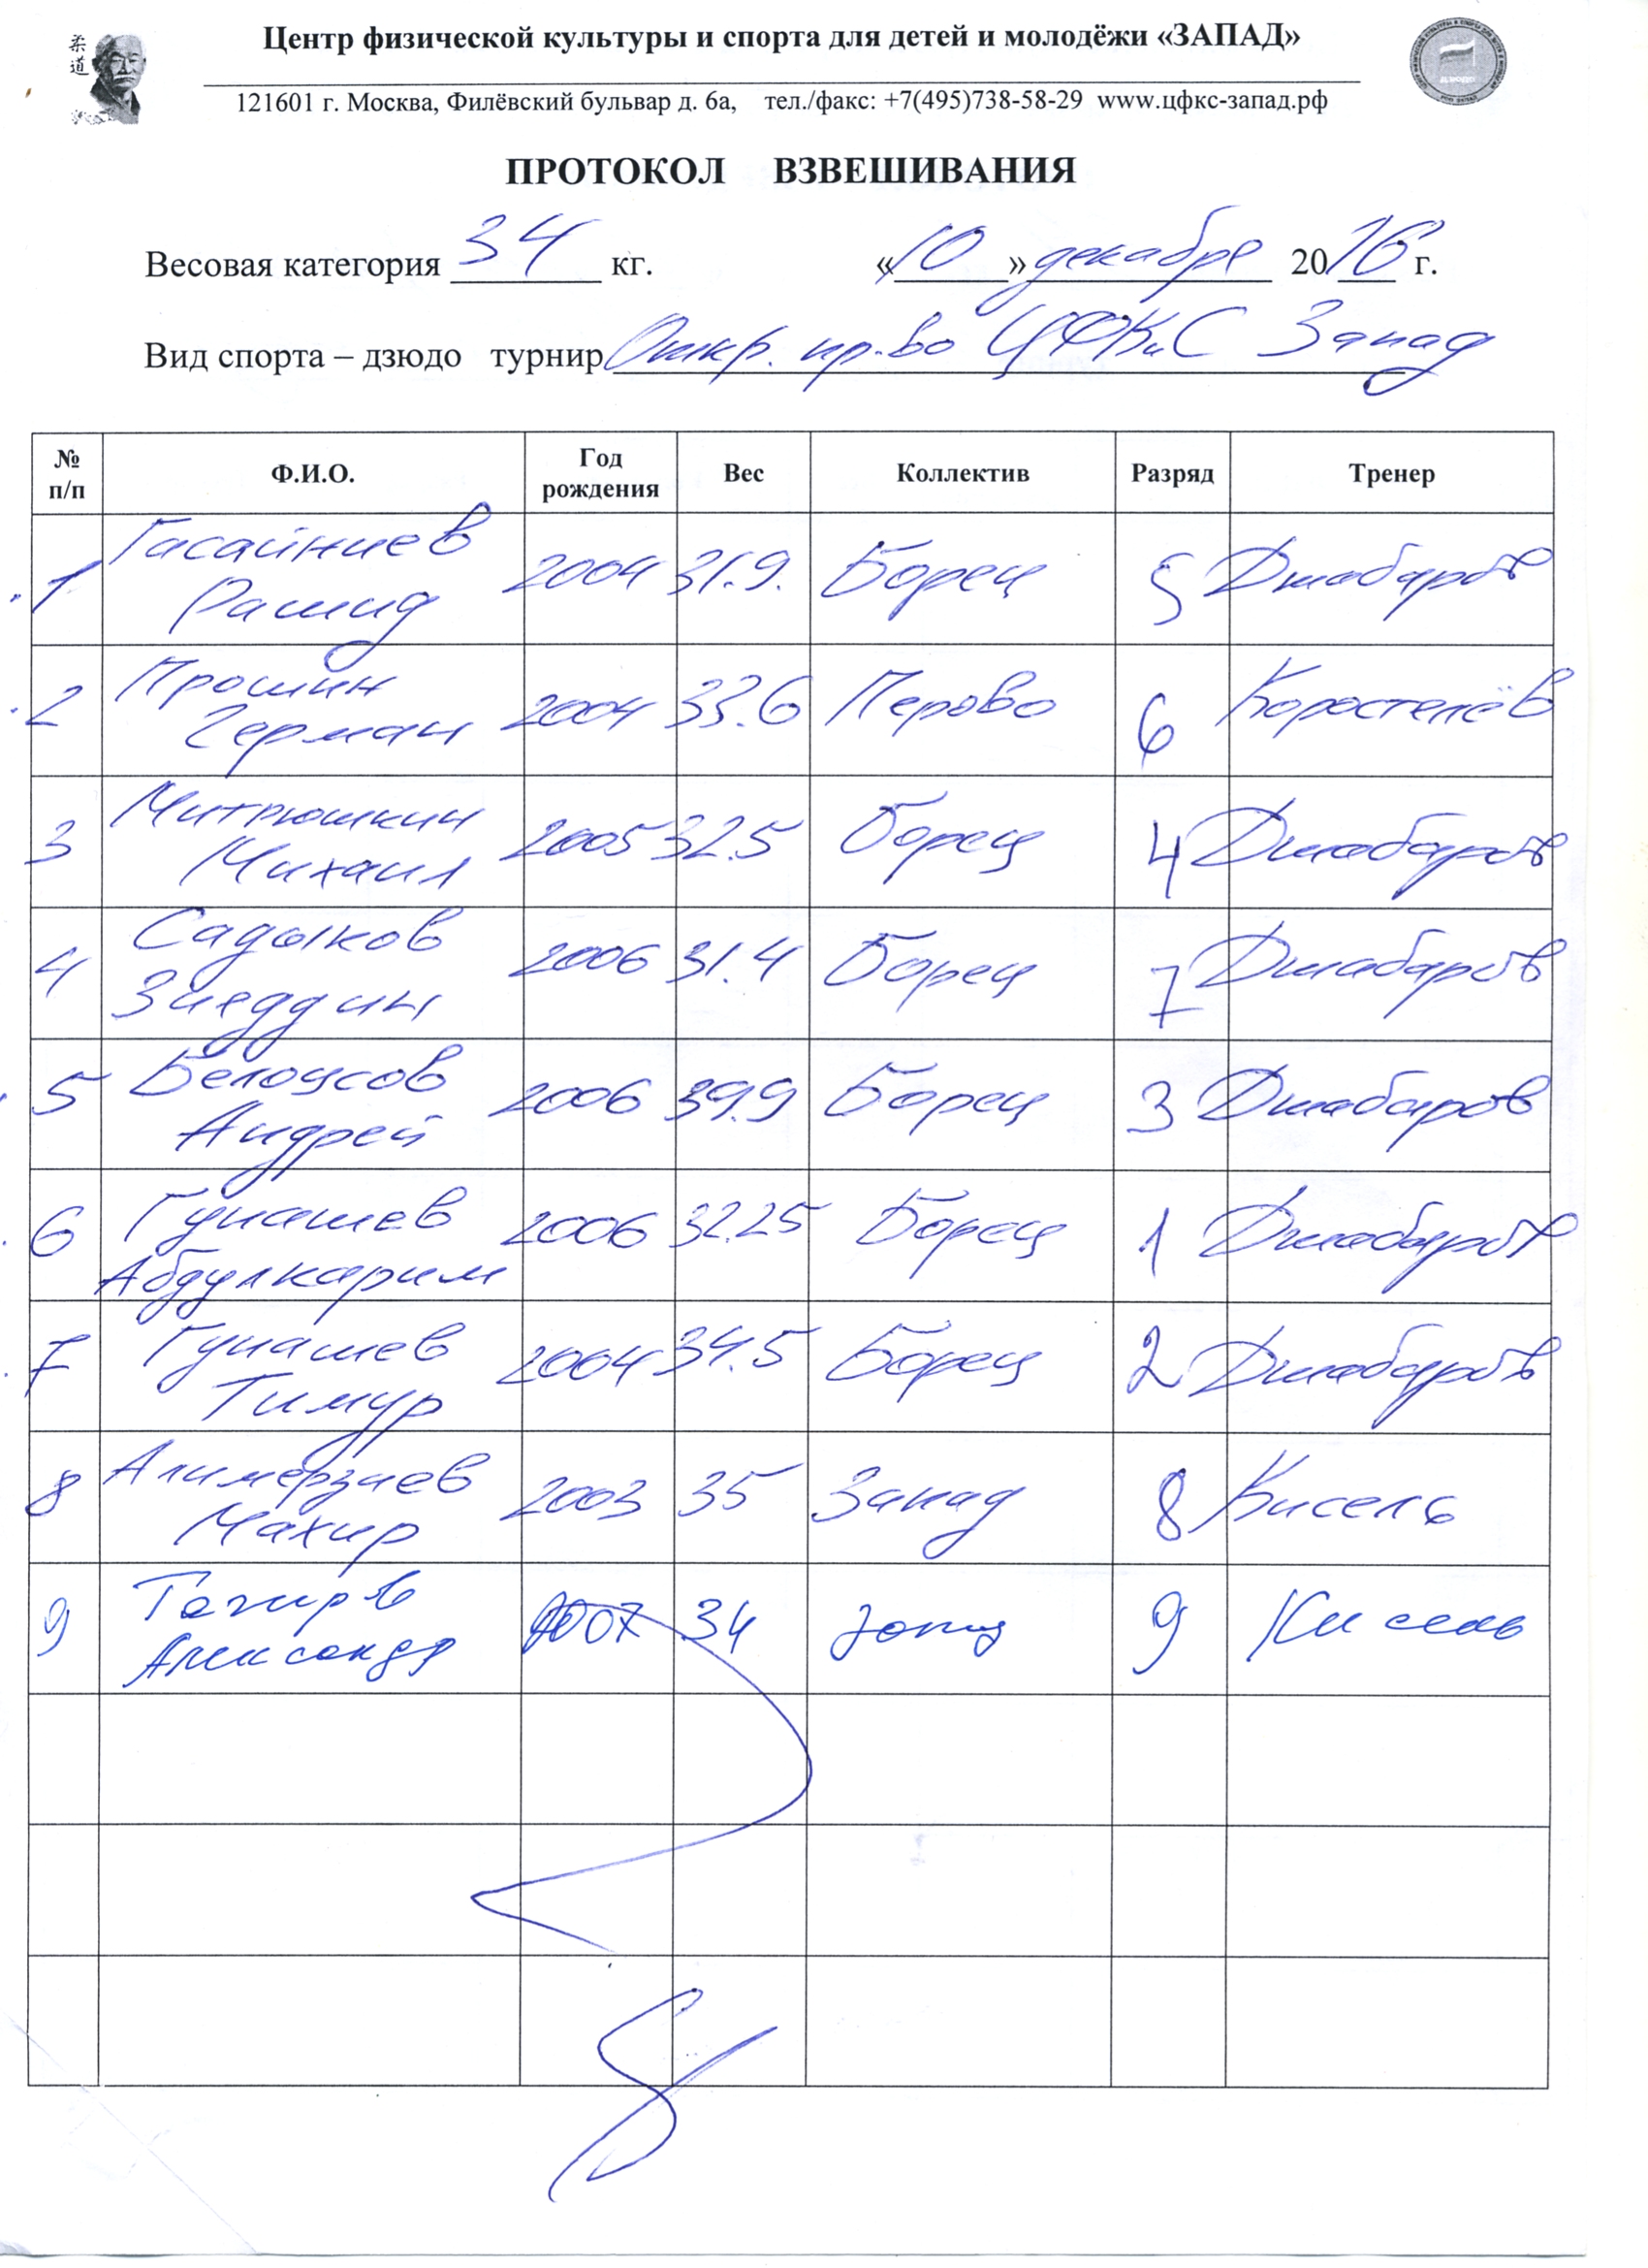 柔
道
Центр физической культуры и спорта для детей и молодёжи «ЗАПАД»
121601 г. Москва, Филёвский бульвар д. 6а, тел./факс: +7(495)738-58-29 www.цфкс-запад.рф
ПРОТОКОЛ ВЗВЕШИВАНИЯ
Весовая категория 34 кг. «10» декабря 2016 г.
Вид спорта – дзюдо турнир Откр. пр-во ЦФКиС Запад
№ п/п Ф.И.О. Год рождения Вес Коллектив Разряд Тренер
1 Гасайниев Рашид 2004 31.9. Борец 5 Джабаров
2 Прошин Герман 2004 33.6 Перово 6 Коростелёв
3 Митрюшкин Михаил 2005 32.5 Борец 4 Джабаров
4 Садыков Зиеддин 2006 31.4 Борец 7 Джабаров
5 Белоусов Андрей 2006 Борец 3 Джабаров
6 Гунашев Абдулкарим 2006 32.25 Борец 1 Джабаров
7 Гунашев Тимур 2004 34.5 Борец 2 Джабаров
8 Алимерзиев Махир 2003 35 Запад 8 Кисель
9 Тагиров Александр 2007 34 Запад 9 Кисель